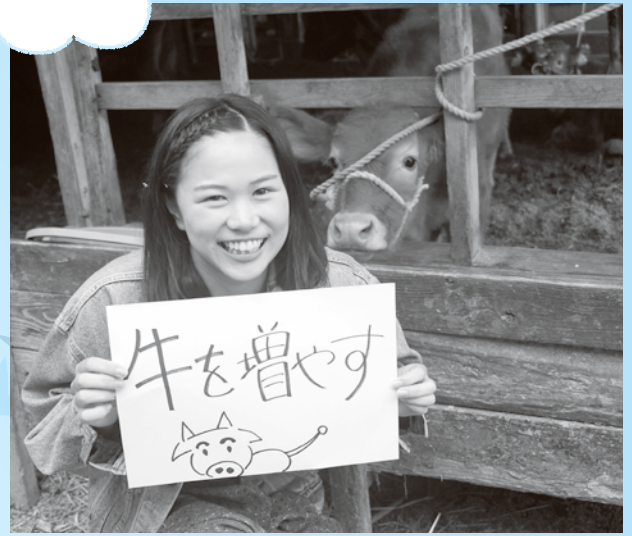 牛を増やす